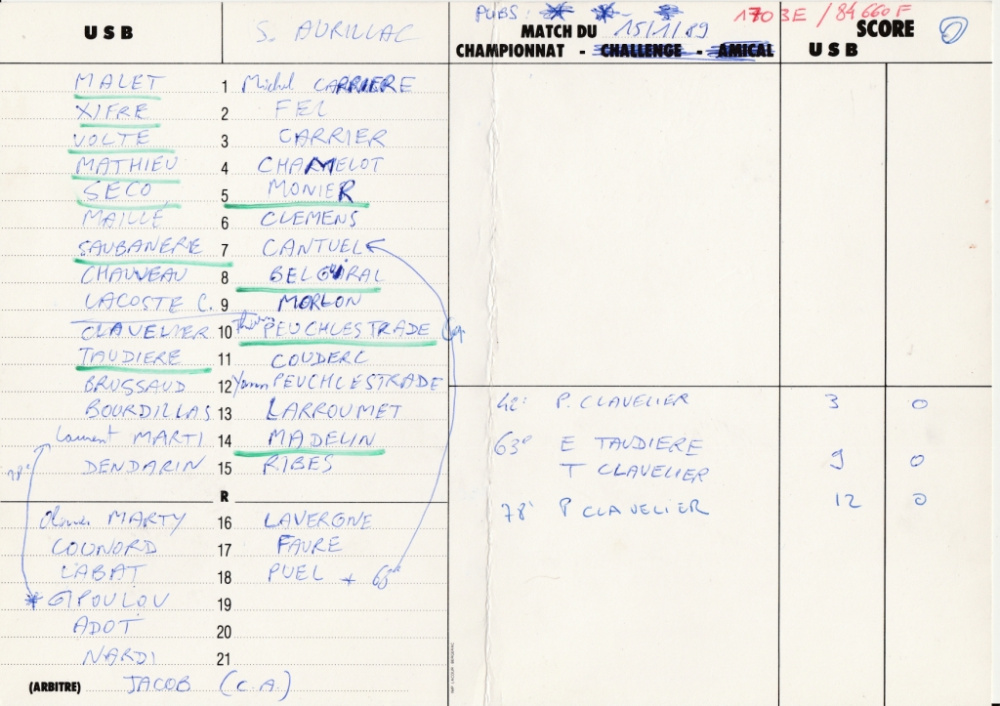 USB S. AURILLAC PUBS: 1703E / 84 660 F
MATCH DU 15/1/89 SCORE
CHAMPIONNAT - CHALLENGE - AMICAL USB
MALET 1 Michel CARRIERE
XIFRE 2 FEL
VOLTE 3 CARRIER
MATHIEU 4 CHAMELOT
SECO 5 MONIER
MAILLE 6 CLEMENS
SAUBANERE 7 CANTUEL
CHAUVEAU 8 BELGUIRAL
LACOSTE C. 9 MORLON
CLAVELIER 10 PEUCHLESTRADE Cap.
TAUDIERE 11 COUDERC
BROSSAUD 12 Yann PEUCHLESTRADE
BOURDILLAS 13 LARROUMET
Laurent MARTI 14 MADELIN
78e DENDARIN 15 RIBES
R
MARTY 16 LAVERGNE
COUNORD 17 FAURE
LABAT 18 PUEL + 63e
GIPOULOU 19
ADOT 20
NARDI 21
(ARBITRE) JACOB (C.A)
42e P. CLAVELIER 3 0
63e E TAUDIERE
T CLAVELIER 9 0
78e P CLAVELIER 12 0